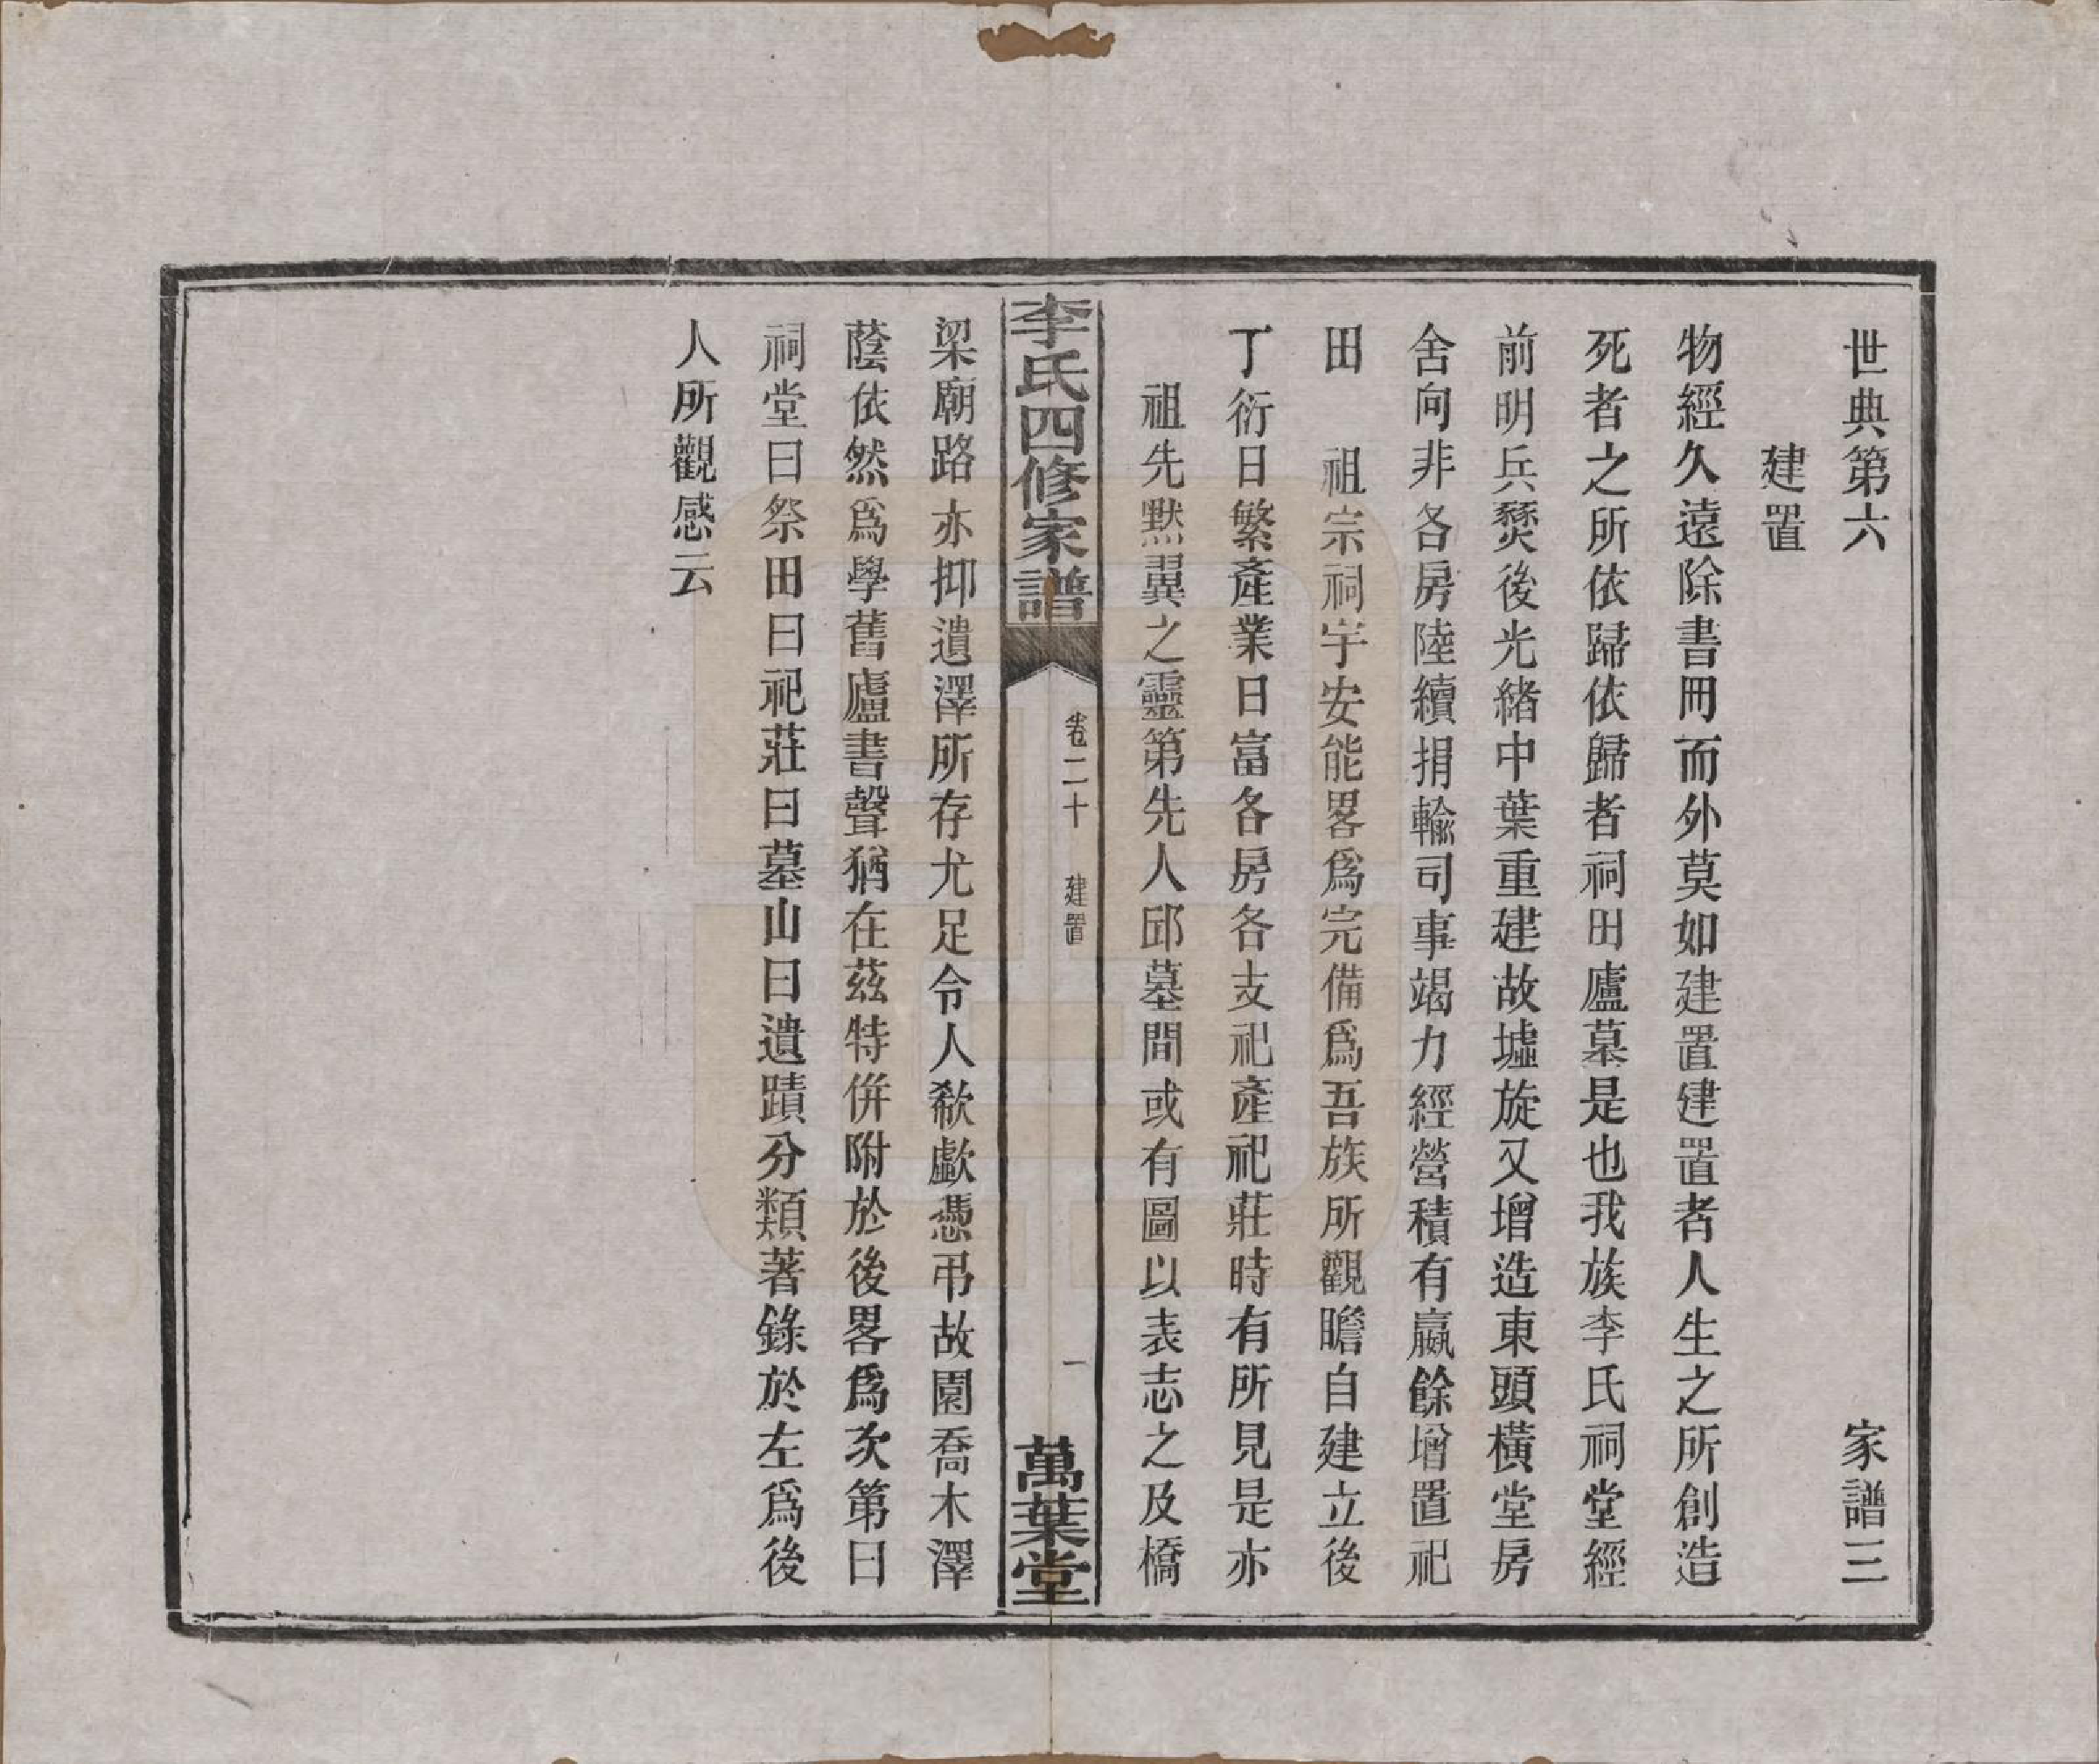 世典第六　家譜三
建置
物經久遠除書冊而外莫如建置建置者人生之所創造
死者之所依歸依歸者祠田廬墓是也我族李氏祠堂經
前明兵燹後光緒中葉重建故墟旋又增造東頭橫堂房
舍向非各房陸續捐輸司事竭力經營積有嬴餘增置祀
田　祖宗祠宇安能畧爲完備爲吾族所觀瞻自建立後
丁衍日繁產業日富各房各支祀產祀莊時有所見是亦
祖先默翼之靈第先人邱墓間或有圖以表志之及橋
李氏四修家譜　卷二十　建置　一　萬葉堂
梁廟路亦抑遺澤所存尤足令人欷歔憑弔故園喬木澤
蔭依然爲學舊廬書聲猶在茲特併附於後畧爲次第曰
祠堂曰祭田曰祀莊曰墓山曰遺蹟分類著錄於左爲後
人所觀感云